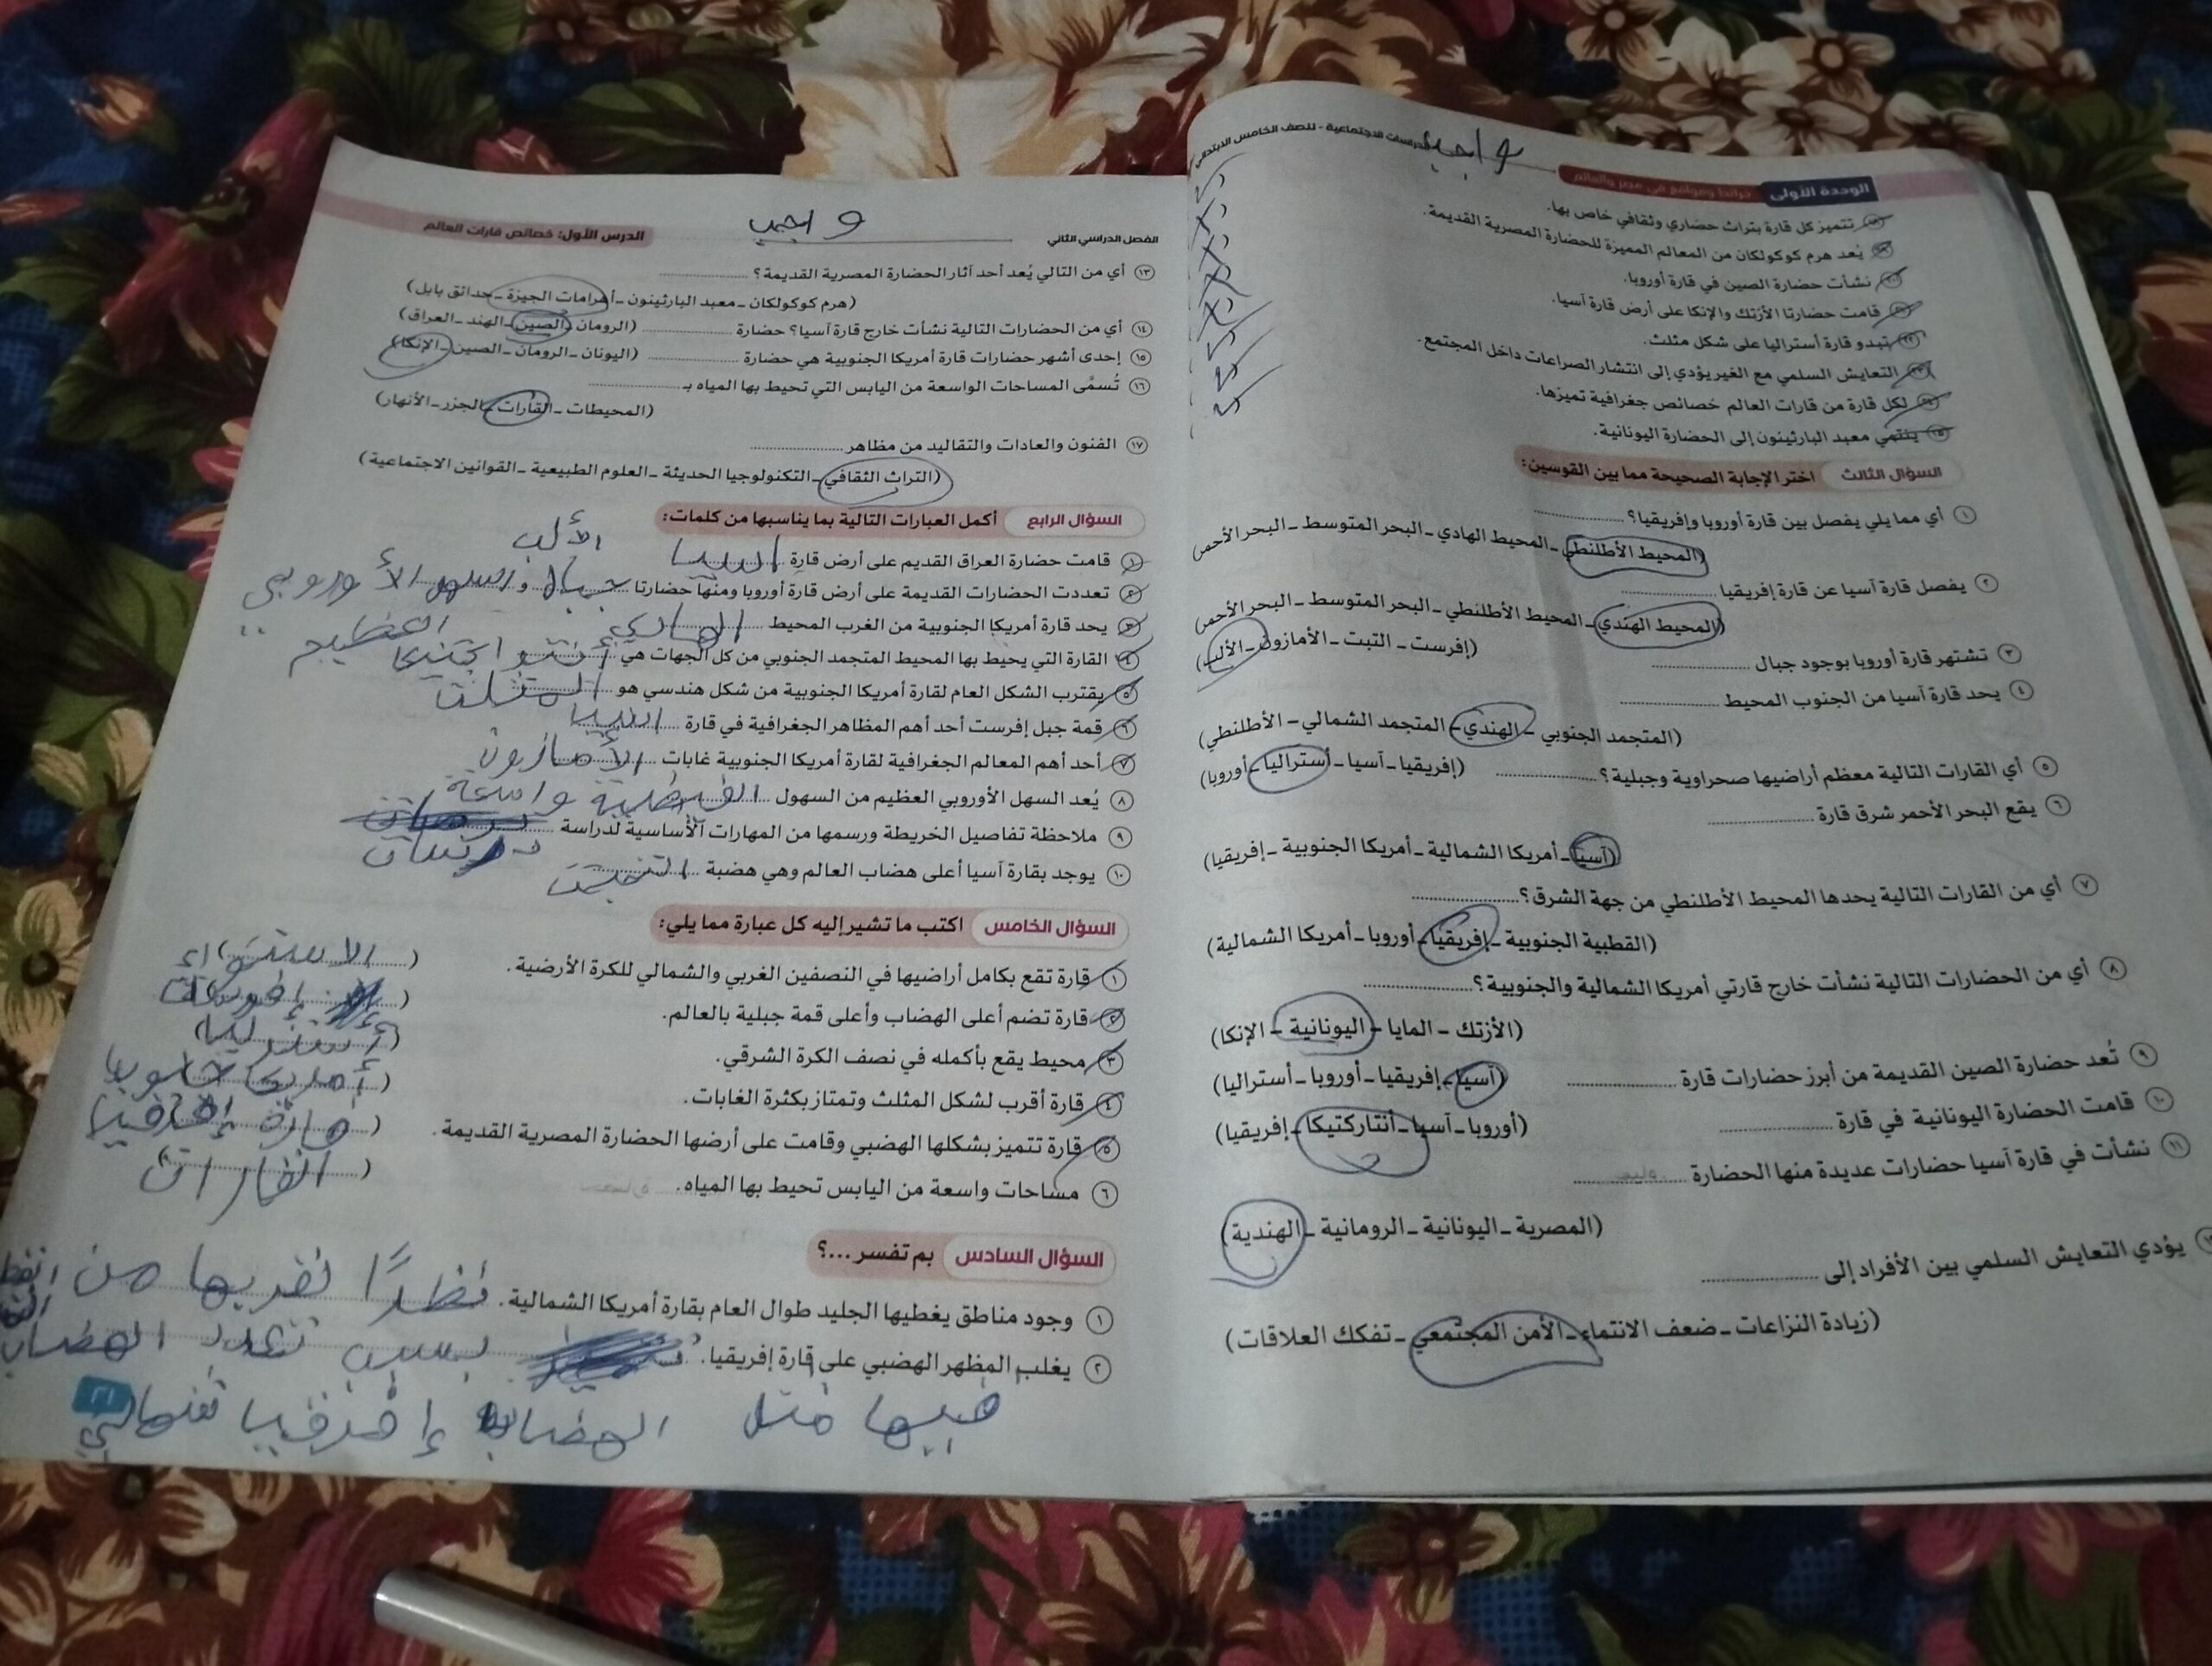 الدراسات الاجتماعية - للصف الخامس الابتدائي
واجب
الوحدة الأولى خرائط ومواقع في مصر والعالم
تتميز كل قارة بتراث حضاري وثقافي خاص بها.
يُعد هرم كوكولكان من المعالم المميزة للحضارة المصرية القديمة.
نشأت حضارة الصين في قارة أوروبا.
قامت حضارتا الأزتك والإنكا على أرض قارة آسيا.
تبدو قارة أستراليا على شكل مثلث.
التعايش السلمي مع الغير يؤدي إلى انتشار الصراعات داخل المجتمع.
لكل قارة من قارات العالم خصائص جغرافية تميزها.
ينتمي معبد البارثينون إلى الحضارة اليونانية.
السؤال الثالث اختر الإجابة الصحيحة مما بين القوسين:
١ أي مما يلي يفصل بين قارة أوروبا وإفريقيا؟ ..........
(المحيط الأطلنطي - المحيط الهادي - البحر المتوسط - البحر الأحمر)
٢ يفصل قارة آسيا عن قارة إفريقيا ..........
(المحيط الهندي - المحيط الأطلنطي - البحر المتوسط - البحر الأحمر)
٣ تشتهر قارة أوروبا بوجود جبال .......... (إفرست - التبت - الأمازون - الألب)
٤ يحد قارة آسيا من الجنوب المحيط ..........
(المتجمد الجنوبي - الهندي - المتجمد الشمالي - الأطلنطي)
٥ أي القارات التالية معظم أراضيها صحراوية وجبلية؟ .......... (إفريقيا - آسيا - أستراليا - أوروبا)
٦ يقع البحر الأحمر شرق قارة ..........
(آسيا - أمريكا الشمالية - أمريكا الجنوبية - إفريقيا)
٧ أي من القارات التالية يحدها المحيط الأطلنطي من جهة الشرق؟ ..........
(القطبية الجنوبية - إفريقيا - أوروبا - أمريكا الشمالية)
٨ أي من الحضارات التالية نشأت خارج قارتي أمريكا الشمالية والجنوبية؟ ..........
(الأزتك - المايا - اليونانية - الإنكا)
٩ تُعد حضارة الصين القديمة من أبرز حضارات قارة .......... (آسيا - إفريقيا - أوروبا - أستراليا)
١٠ قامت الحضارة اليونانية في قارة .......... (أوروبا - آسيا - أنتاركتيكا - إفريقيا)
١١ نشأت في قارة آسيا حضارات عديدة منها الحضارة ..........
(المصرية - اليونانية - الرومانية - الهندية)
يؤدي التعايش السلمي بين الأفراد إلى ..........
(زيادة النزاعات - ضعف الانتماء - الأمن المجتمعي - تفكك العلاقات)
الفصل الدراسي الثاني
واجب
الدرس الأول: خصائص قارات العالم
١٣ أي من التالي يُعد أحد آثار الحضارة المصرية القديمة؟ ..........
(هرم كوكولكان - معبد البارثينون - أهرامات الجيزة - حدائق بابل)
١٤ أي من الحضارات التالية نشأت خارج قارة آسيا؟ حضارة .......... (الرومان - الصين - الهند - العراق)
١٥ إحدى أشهر حضارات قارة أمريكا الجنوبية هي حضارة .......... (اليونان - الرومان - الصين - الإنكا)
١٦ تُسمَّى المساحات الواسعة من اليابس التي تحيط بها المياه بـ ..........
(المحيطات - القارات - الجزر - الأنهار)
١٧ الفنون والعادات والتقاليد من مظاهر ..........
(التراث الثقافي - التكنولوجيا الحديثة - العلوم الطبيعية - القوانين الاجتماعية)
السؤال الرابع أكمل العبارات التالية بما يناسبها من كلمات:
الألب
١ قامت حضارة العراق القديم على أرض قارة اسيا
٢ تعددت الحضارات القديمة على أرض قارة أوروبا ومنها حضارتا جبال و السهل الأوروبي
العظيم
٣ يحد قارة أمريكا الجنوبية من الغرب المحيط الهادي
٤ القارة التي يحيط بها المحيط المتجمد الجنوبي من كل الجهات هي
٥ يقترب الشكل العام لقارة أمريكا الجنوبية من شكل هندسي هو المثلث
٦ قمة جبل إفرست أحد أهم المظاهر الجغرافية في قارة اسيا
٧ أحد أهم المعالم الجغرافية لقارة أمريكا الجنوبية غابات الأمازون
٨ يُعد السهل الأوروبي العظيم من السهول الفيضية واسعة
٩ ملاحظة تفاصيل الخريطة ورسمها من المهارات الأساسية لدراسة
١٠ يوجد بقارة آسيا أعلى هضاب العالم وهي هضبة التبت
السؤال الخامس اكتب ما تشير إليه كل عبارة مما يلي:
١ قارة تقع بكامل أراضيها في النصفين الغربي والشمالي للكرة الأرضية. (الاستواء)
٢ قارة تضم أعلى الهضاب وأعلى قمة جبلية بالعالم.
٣ محيط يقع بأكمله في نصف الكرة الشرقي. (أستراليا)
٤ قارة أقرب لشكل المثلث وتمتاز بكثرة الغابات. (أمريكا جنوبيا)
٥ قارة تتميز بشكلها الهضبي وقامت على أرضها الحضارة المصرية القديمة. (قارة إفريقيا)
٦ مساحات واسعة من اليابس تحيط بها المياه. (القارات)
السؤال السادس بم تفسر ...؟
١ وجود مناطق يغطيها الجليد طوال العام بقارة أمريكا الشمالية. نظرًا لقربها من
٢ يغلب المظهر الهضبي على قارة إفريقيا. بسبب تعدد الهضاب
فيها مثل الهضاب إفريقيا
٢١